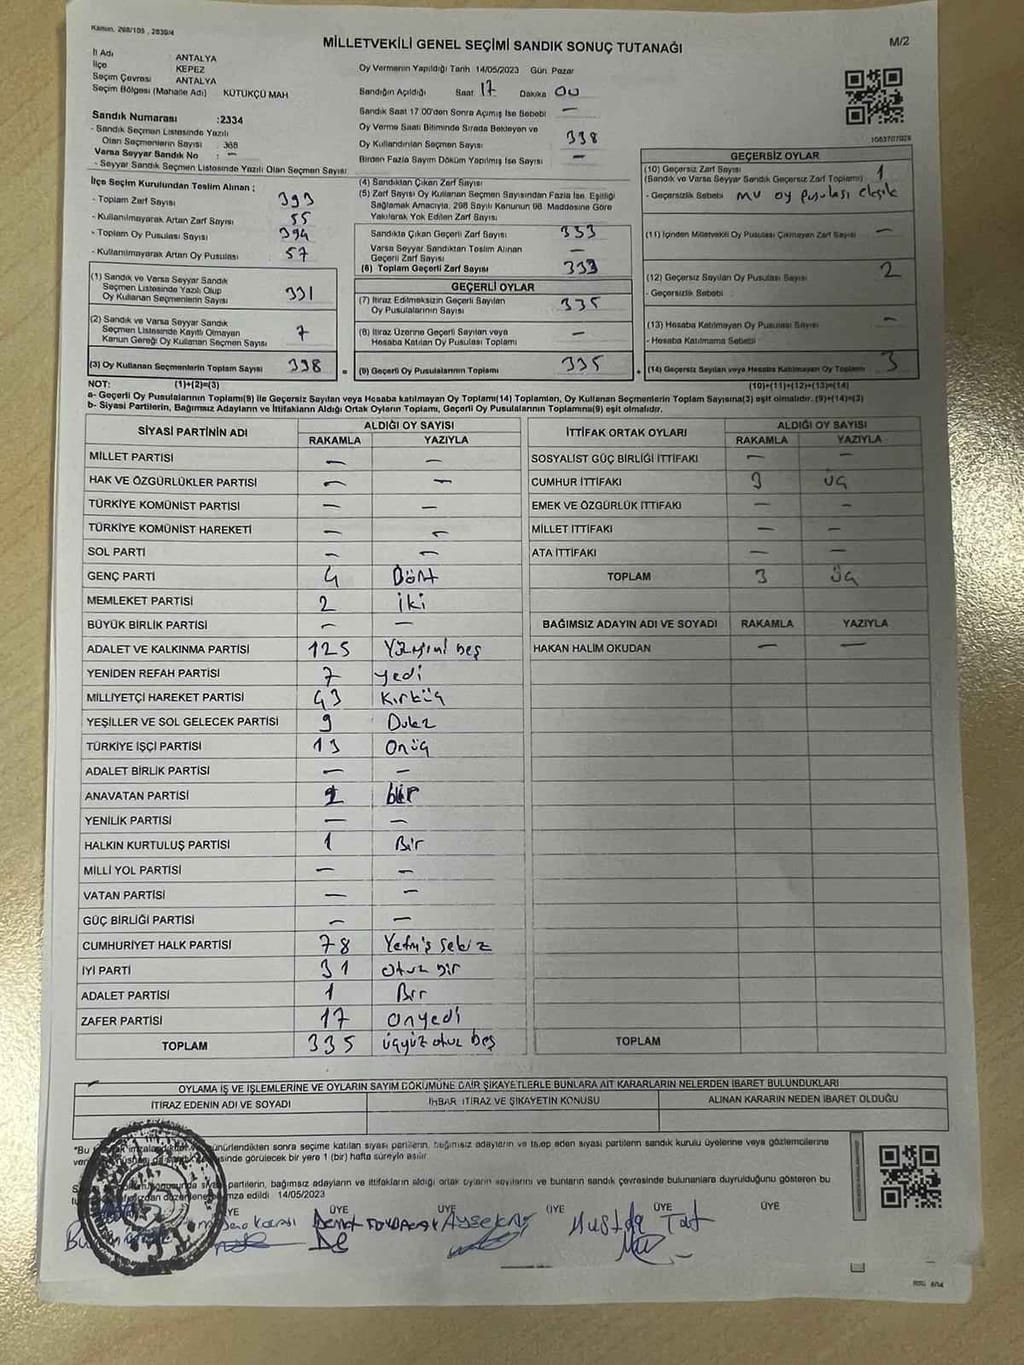 Kanun, 298/105 , 2839/4
MİLLETVEKİLİ GENEL SEÇİMİ SANDIK SONUÇ TUTANAĞI
M/2
İl Adı ANTALYA
İlçe KEPEZ
Seçim Çevresi ANTALYA
Seçim Bölgesi (Mahalle Adı) KÜTÜKÇÜ MAH
Sandık Numarası :2334
- Sandık Seçmen Listesinde Yazılı
Olan Seçmenlerin Sayısı : 388
Varsa Seyyar Sandık No : —
- Seyyar Sandık Seçmen Listesinde Yazılı Olan Seçmen Sayısı
Oy Vermenin Yapıldığı Tarih 14/05/2023 Gün Pazar
Sandığın Açıldığı Saat 17 Dakika 00
Sandık Saat 17:00'den Sonra Açımış İse Sebebi —
Oy Verme Saati Bitiminde Sırada Bekleyen ve
Oy Kullandırılan Seçmen Sayısı 338
Birden Fazla Sayım Döküm Yapılmış İse Sayısı —
1083707028
İlçe Seçim Kurulundan Teslim Alınan ;
- Toplam Zarf Sayısı 393
- Kullanılmayarak Artan Zarf Sayısı 55
- Toplam Oy Pusulası Sayısı 394
- Kullanılmayarak Artan Oy Pusulası 57
(1) Sandık ve Varsa Seyyar Sandık
Seçmen Listesinde Yazılı Olup
Oy Kullanan Seçmenlerin Sayısı 331
(2) Sandık ve Varsa Seyyar Sandık
Seçmen Listesinde Kayıtlı Olmayan
Kanun Gereği Oy Kullanan Seçmen Sayısı 7
(3) Oy Kullanan Seçmenlerin Toplam Sayısı 338
(4) Sandıktan Çıkan Zarf Sayısı
(5) Zarf Sayısı Oy Kullanan Seçmen Sayısından Fazla ise, Eşitliği
Sağlamak Amacıyla, 298 Sayılı Kanunun 98. Maddesine Göre
Yakılarak Yok Edilen Zarf Sayısı
Sandıkta Çıkan Geçerli Zarf Sayısı 333
Varsa Seyyar Sandıktan Teslim Alınan
Geçerli Zarf Sayısı —
(6) Toplam Geçerli Zarf Sayısı 333
GEÇERLİ OYLAR
(7) İtiraz Edilmeksizin Geçerli Sayılan
Oy Pusulalarının Sayısı 335
(8) İtiraz Üzerine Geçerli Sayılan veya
Hesaba Katılan Oy Pusulası Toplamı —
(9) Geçerli Oy Pusulalarının Toplamı 335
GEÇERSİZ OYLAR
(10) Geçersiz Zarf Sayısı 1
(Sandık ve Varsa Seyyar Sandık Geçersiz Zarf Toplamı)
- Geçersizlik Sebebi MV oy pusulası eksik
(11) İçinden Milletvekili Oy Pusulası Çıkmayan Zarf Sayısı —
(12) Geçersiz Sayılan Oy Pusulası Sayısı 2
- Geçersizlik Sebebi
(13) Hesaba Katılmayan Oy Pusulası Sayısı —
- Hesaba Katılmama Sebebi
(14) Geçersiz Sayılan veya Hesaba Katılmayan Oy Toplamı 3
NOT: (1)+(2)=(3) (10)+(11)+(12)+(13)=(14)
a- Geçerli Oy Pusulalarının Toplamı(9) ile Geçersiz Sayılan veya Hesaba katılmayan Oy Toplamı(14) Toplamları, Oy Kullanan Seçmenlerin Toplam Sayısına(3) eşit olmalıdır. (9)+(14)=(3)
b- Siyasi Partilerin, Bağımsız Adayların ve İttifakların Aldığı Ortak Oyların Toplamı, Geçerli Oy Pusulalarının Toplamına(9) eşit olmalıdır.
SİYASİ PARTİNİN ADI ALDIĞI OY SAYISI
RAKAMLA YAZIYLA
MİLLET PARTİSİ — —
HAK VE ÖZGÜRLÜKLER PARTİSİ — —
TÜRKİYE KOMÜNİST PARTİSİ — —
TÜRKİYE KOMÜNİST HAREKETİ — —
SOL PARTİ — —
GENÇ PARTİ 4 Dört
MEMLEKET PARTİSİ 2 İki
BÜYÜK BİRLİK PARTİSİ — —
ADALET VE KALKINMA PARTİSİ 125 Yüzyirmi beş
YENİDEN REFAH PARTİSİ 7 yedi
MİLLİYETÇİ HAREKET PARTİSİ 43 Kırküç
YEŞİLLER VE SOL GELECEK PARTİSİ 9 Dokuz
TÜRKİYE İŞÇİ PARTİSİ 13 Onüç
ADALET BİRLİK PARTİSİ — —
ANAVATAN PARTİSİ 1 bir
YENİLİK PARTİSİ — —
HALKIN KURTULUŞ PARTİSİ 1 Bir
MİLLİ YOL PARTİSİ — —
VATAN PARTİSİ — —
GÜÇ BİRLİĞİ PARTİSİ — —
CUMHURİYET HALK PARTİSİ 78 Yetmiş sekiz
İYİ PARTİ 31 otuz bir
ADALET PARTİSİ 1 Bir
ZAFER PARTİSİ 17 Onyedi
TOPLAM 335 üçyüz otuz beş
İTTİFAK ORTAK OYLARI ALDIĞI OY SAYISI
RAKAMLA YAZIYLA
SOSYALİST GÜÇ BİRLİĞİ İTTİFAKI — —
CUMHUR İTTİFAKI 3 üç
EMEK VE ÖZGÜRLÜK İTTİFAKI — —
MİLLET İTTİFAKI — —
ATA İTTİFAKI — —
TOPLAM 3 üç
BAĞIMSIZ ADAYIN ADI VE SOYADI RAKAMLA YAZIYLA
HAKAN HALİM OKUDAN — —
TOPLAM
OYLAMA İŞ VE İŞLEMLERİNE VE OYLARIN SAYIM DÖKÜMÜNE DAİR ŞİKAYETLERLE BUNLARA AİT KARARLARIN NELERDEN İBARET BULUNDUKLARI
İTİRAZ EDENİN ADI VE SOYADI İHBAR, İTİRAZ VE ŞİKAYETİN KONUSU ALINAN KARARIN NEDEN İBARET OLDUĞU
*Bu sonra seçime katılan siyasi partilerin, bağımsız adayların ve talep eden siyasi partilerin sandık kurulu üyelerine veya gözlemcilerine
görülecek bir yere 1 (bir) hafta süreyle asılır.
partilerin, bağımsız adayların ve ittifakların aldığı ortak oyların sayılarını ve bunların sandık çevresinde bulunanlara duyrulduğunu gösteren bu
edildi 14/05/2023
ÜYE ÜYE ÜYE ÜYE ÜYE
Mustafa Tat